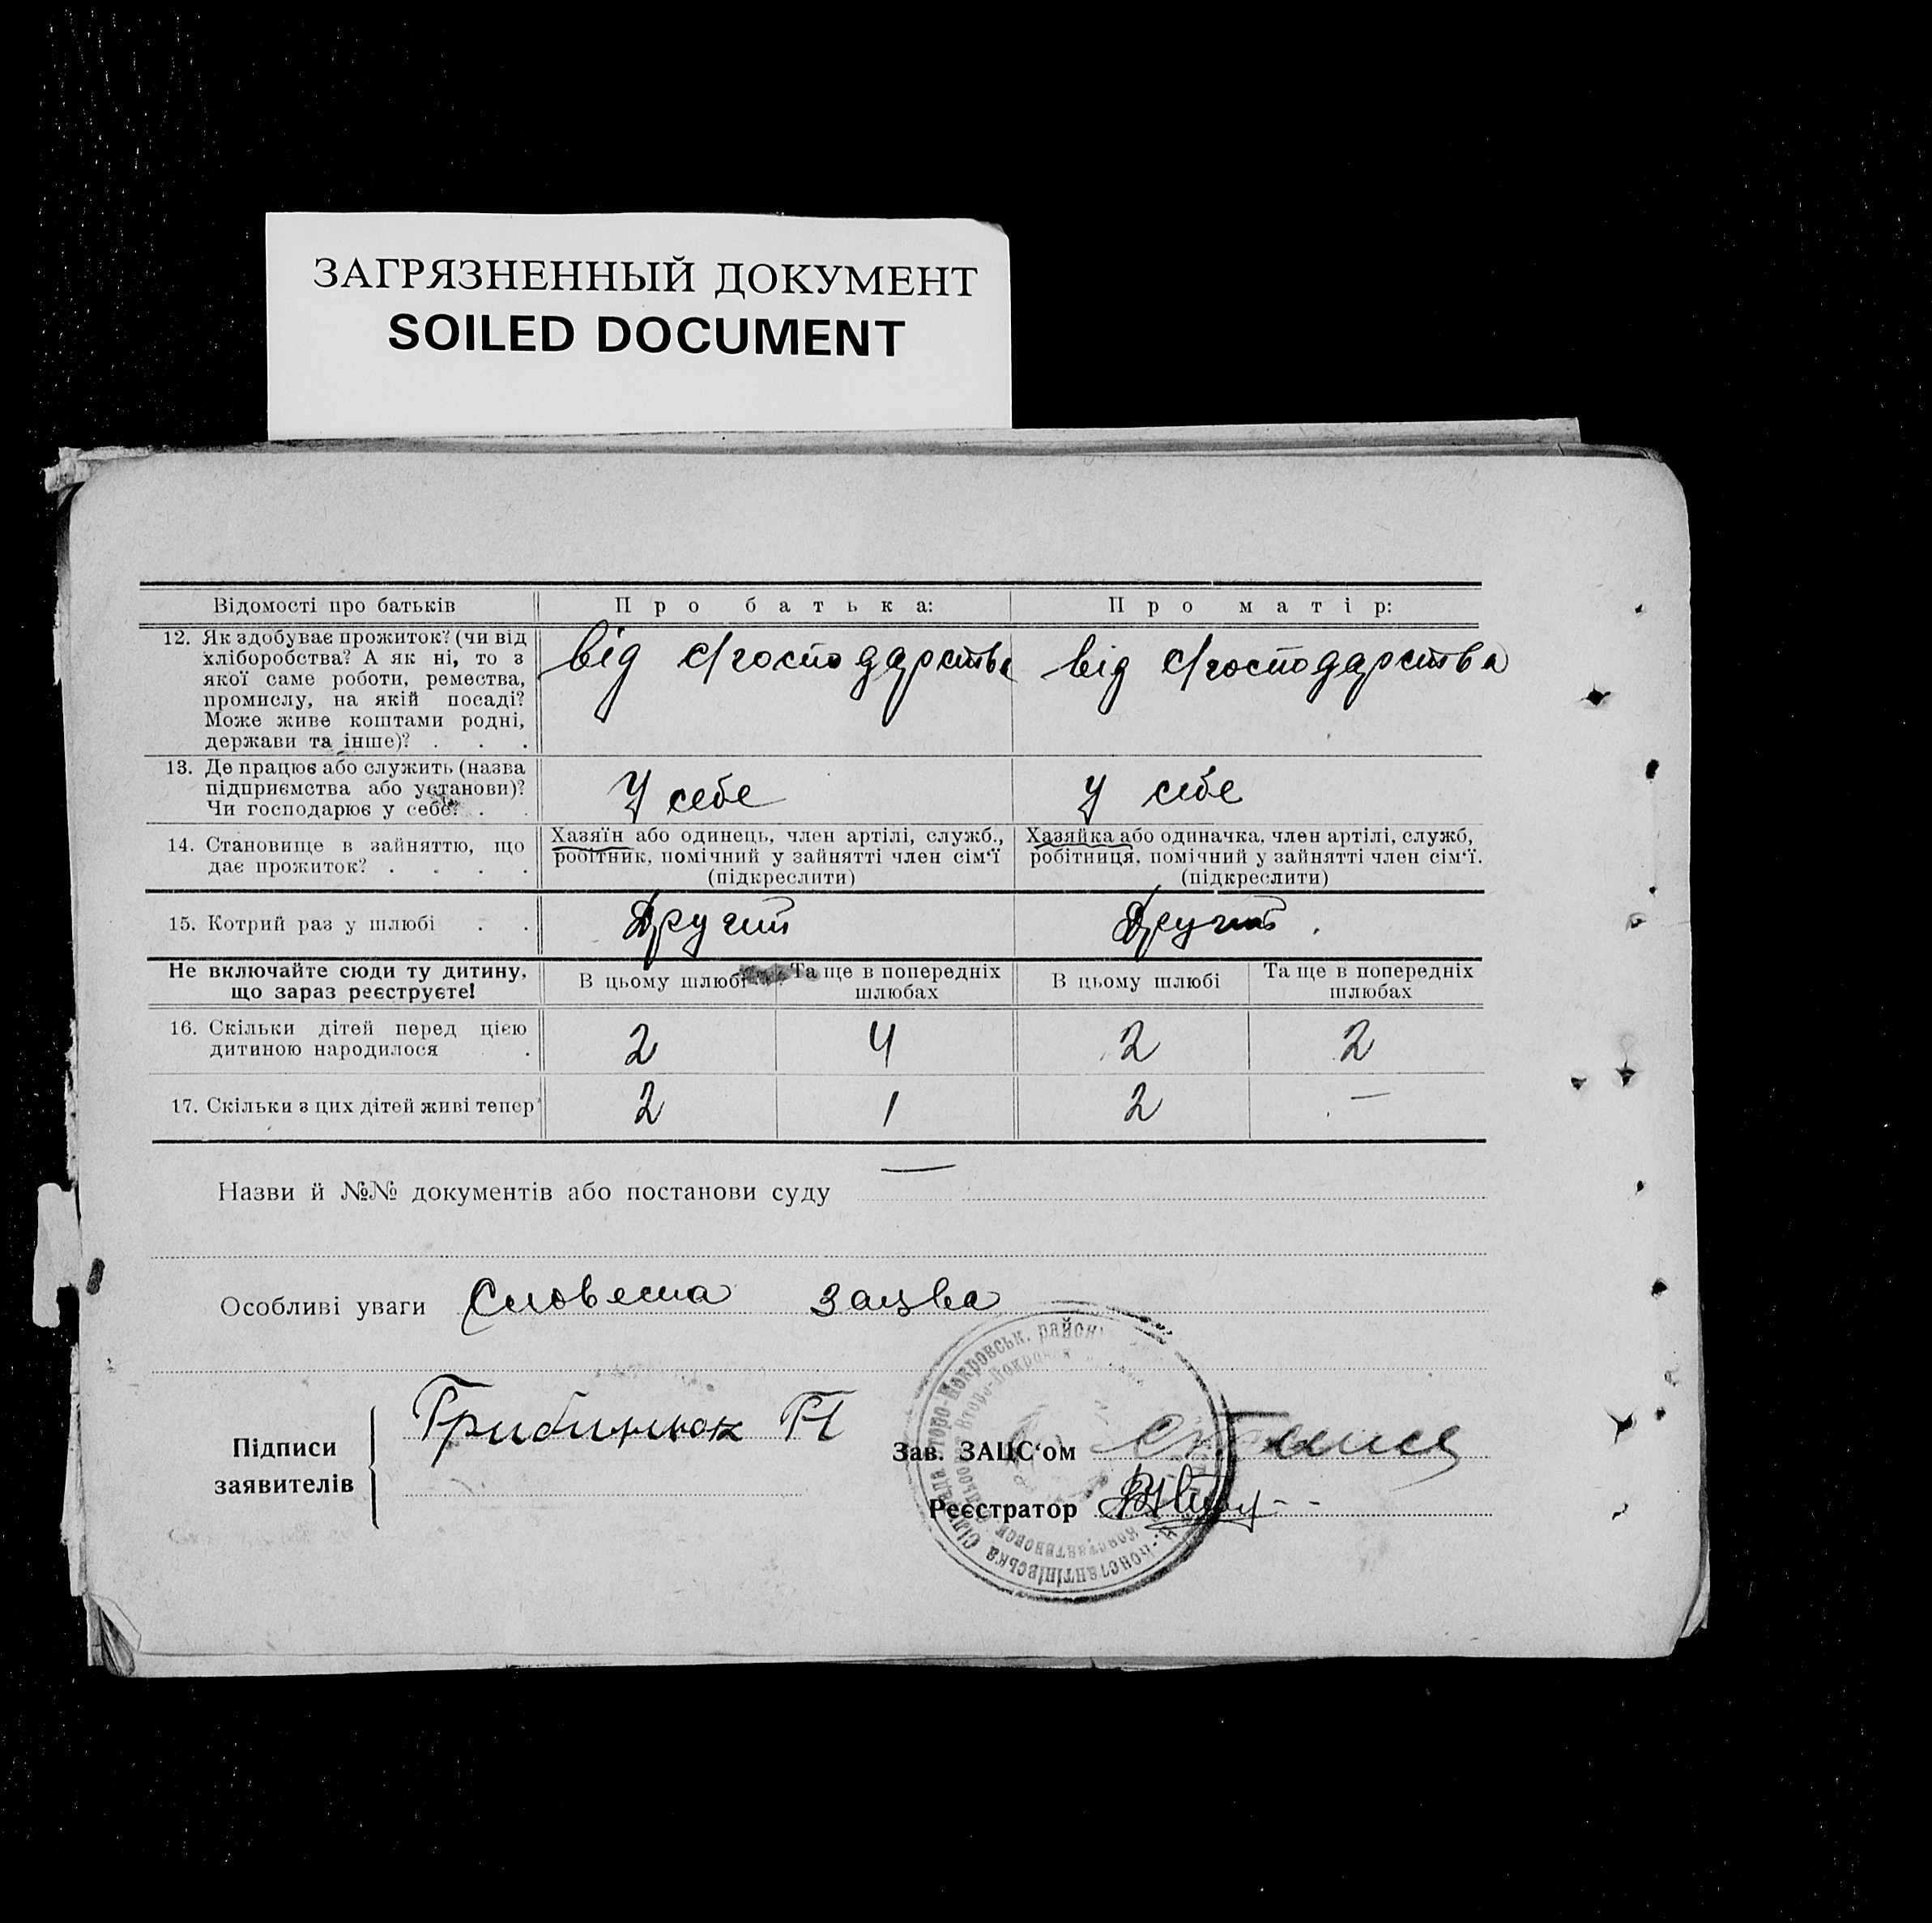 ЗАГРЯЗНЕННЫЙ ДОКУМЕНТ
SOILED DOCUMENT
Відомості про батьків
Про батька:
Про матір:
12. Як здобуває прожиток? (чи від
хліборобства? А як ні, то з
якої саме роботи, ремества,
промислу, на якій посаді?
Може живе коштами родні,
держави та інше)? . . .
від с/господарства
від с/господарства
13. Де працює або служить (назва
підприємства або установи)?
Чи господарює у себе? . .
У себе
У себе
14. Становище в зайняттю, що
дає прожиток? . . . .
Хазяїн або одинець, член артілі, служб.,
робітник, помічний у зайнятті член сім'ї
(підкреслити)
Хазяйка або одиначка, член артілі, служб,
робітниця, помічний у зайнятті член сім'ї.
(підкреслити)
15. Котрий раз у шлюбі . .
Другий
Другий .
Не включайте сюди ту дитину,
що зараз реєструєте!
В цьому шлюбі
Та ще в попередніх
шлюбах
В цьому шлюбі
Та ще в попередніх
шлюбах
16. Скільки дітей перед цією
дитиною народилося .
2
4
2
2
17. Скільки з цих дітей живі тепер
2
1
2
—
Назви й №№ документів або постанови суду —
Особливі уваги Словесна заява
Підписи
заявителів
Зав. ЗАЦС'ом
Реєстратор
Второ-Покровськ. район